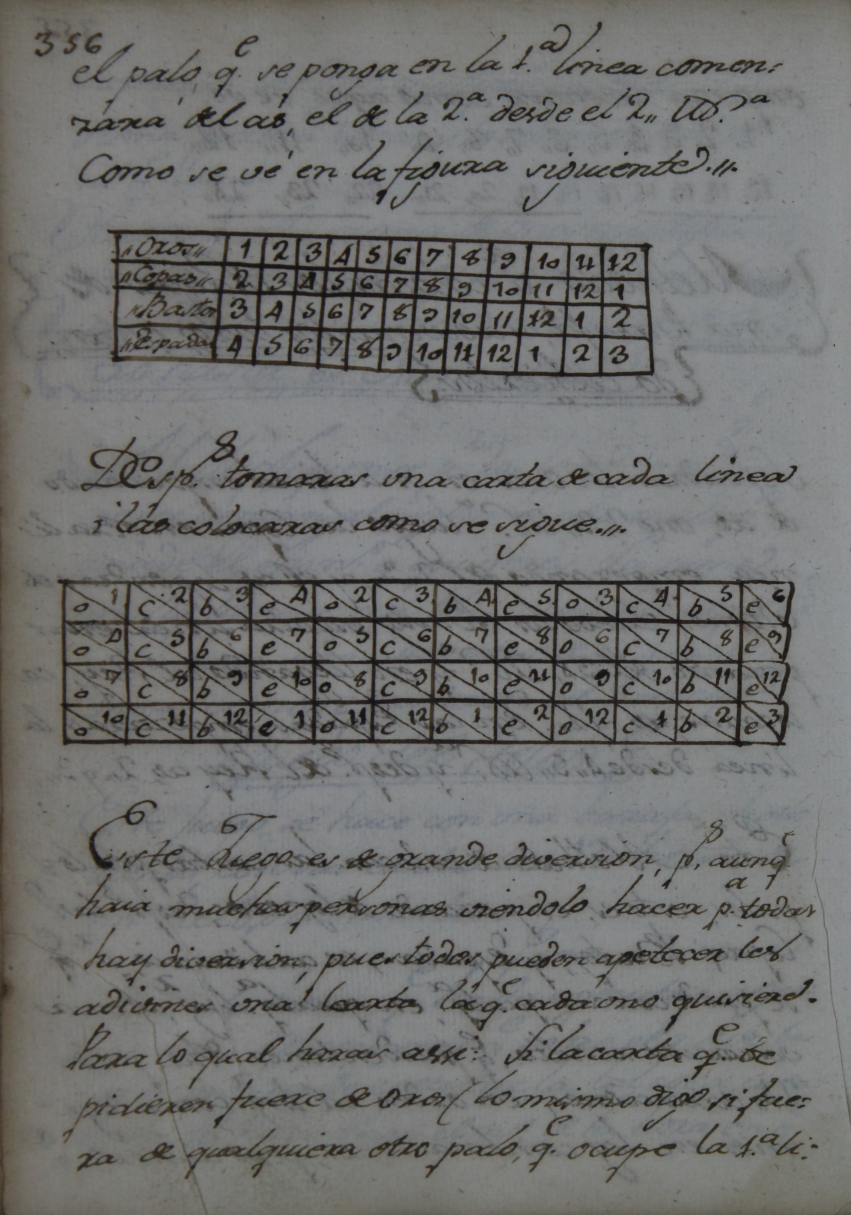 356
el palo, q.e se ponga en la 1.a linea comen:
zara del as, el de la 2.a desde el 2,,
Como se vé en la figura siguiente.,,
,,Oros,, 1 2 3 4 5 6 7 8 9 10 11 12
,,Copas,, 2 3 4 5 6 7 8 9 10 11 12 1
,,Bastos 3 4 5 6 7 8 9 10 11 12 1 2
,,Espadas 4 5 6 7 8 9 10 11 12 1 2 3
Desp.s tomaras una carta de cada linea
i las colocaras como se sigue.,,
o 1 c 2 b 3 e 4 o 2 c 3 b 4 e 5 o 3 c 4 b 5 e 6
o 4 c 5 b 6 e 7 o 5 c 6 b 7 e 8 o 6 c 7 b 8 e 9
o 7 c 8 b 9 e 10 o 8 c 9 b 10 e 11 o 9 c 10 b 11 e 12
o 10 c 11 b 12 e 1 o 11 c 12 b 1 e 2 o 12 c 1 b 2 e 3
Este Juego es de grande diversion, p.s aunq.e
haia muchas personas viendolo hacer p.a todas
hay diversion, pues todos pueden apetecer les
adivines una carta, la q.e cada uno quisiere.
Para lo qual haras assi: Si la carta q.e te
pidieren fuere de Oros (lo mismo digo si fue:
ra de qualquiera otro palo, q.e ocupe la 1.a li: